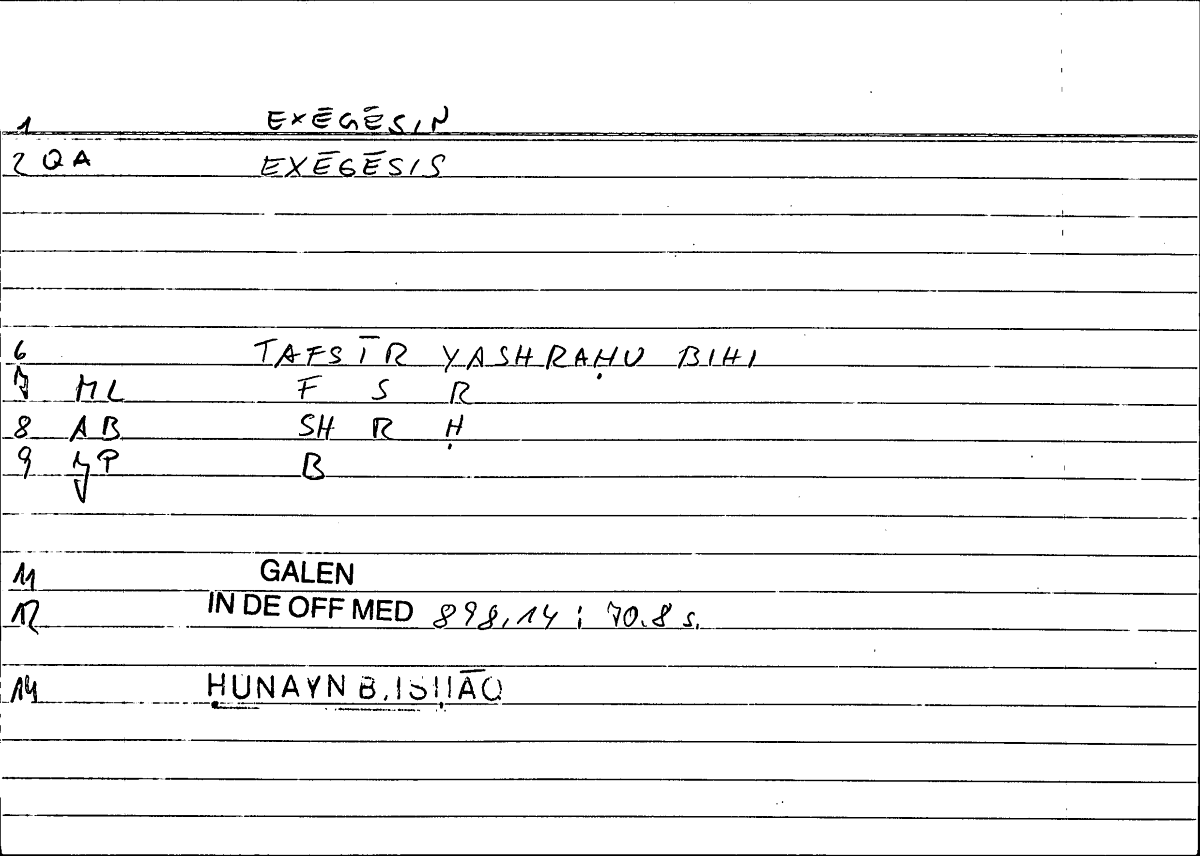 1 EXĒGĒSIN
2 QA EXĒGĒSIS
6 TAFSĪR YASHRAḤU BIHI
7 ML F S R
8 AB SH R Ḥ
9 P B
11 GALEN
12 IN DE OFF MED 898,14 ; 70.8 s.
14 ḤUNAYN B. ISḤĀQ